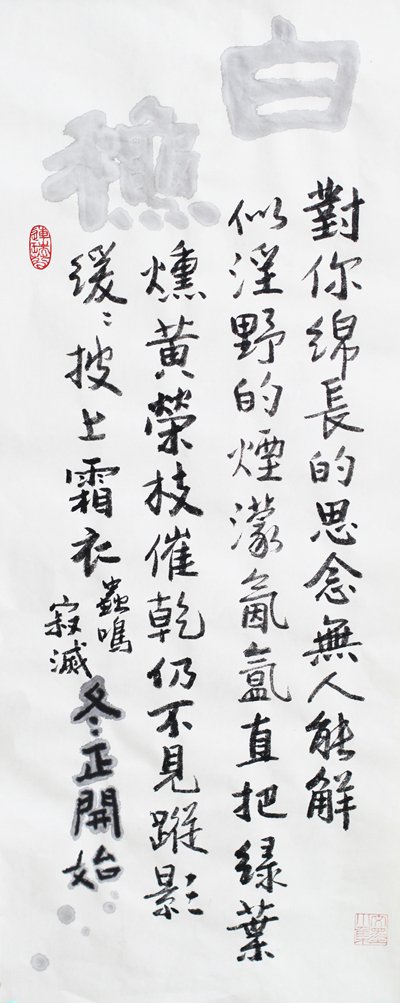 白
對你綿長的思念無人能解
似淫野的煙濛氤氳直把緑葉
燻黃榮枝催乾仍不見蹤影
緩〻披上霜衣
蟲鳴
寂滅
冬正開始